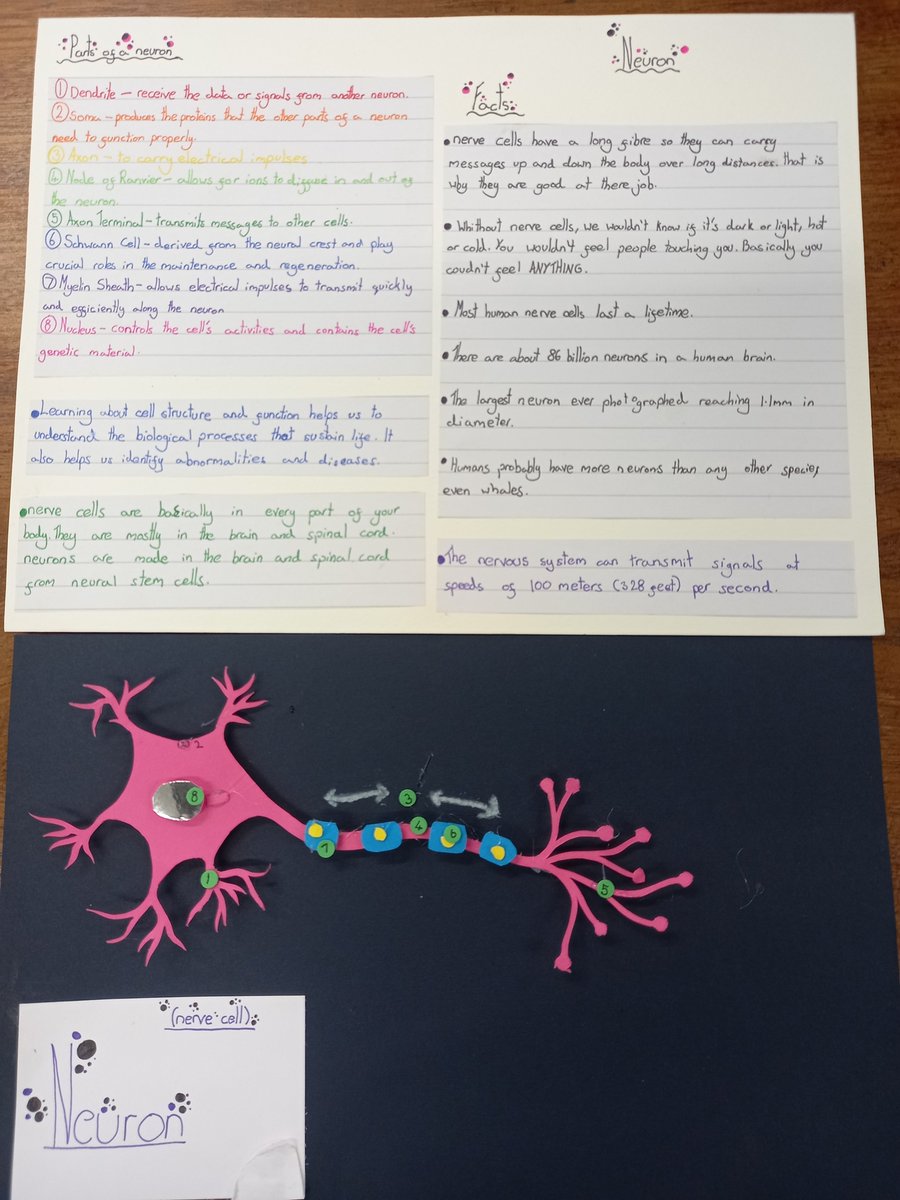 Parts of a neuron
① Dendrite – receive the data or signals from another neuron.
② Soma – produces the proteins that the other parts of a neuron
need to function properly.
③ Axon – to carry electrical impulses
④ Node of Ranvier – allows for ions to diffuse in and out of
the neuron.
⑤ Axon Terminal – transmits messages to other cells.
⑥ Schwann Cell – derived from the neural crest and play
crucial roles in the maintenance and regeneration.
⑦ Myelin Sheath – allows electrical impulses to transmit quickly
and efficiently along the neuron
⑧ Nucleus – controls the cell's activities and contains the cell's
genetic material.
• Learning about cell structure and function helps us to
understand the biological processes that sustain life. It
also helps us identify abnormalities and diseases.
• nerve cells are basically in every part of your
body. They are mostly in the brain and spinal cord.
neurons are made in the brain and spinal cord
from neural stem cells.
Neuron
Facts
• nerve cells have a long fibre so they can carry
messages up and down the body over long distances. that is
why they are good at there job.
• Whithout nerve cells, we wouldn't know if it's dark or light, hot
or cold. You wouldn't feel people touching you. Basically you
coudn't feel ANYTHING.
• Most human nerve cells last a lifetime.
• There are about 86 billion neurons in a human brain.
• The largest neuron ever photographed reaching 1.1mm in
diameter.
• Humans probably have more neurons than any other species,
even whales.
• The nervous system can transmit signals at
speeds of 100 meters (328 feet) per second.
2
8
3
4
6
7
1
5
(nerve cell)
Neuron